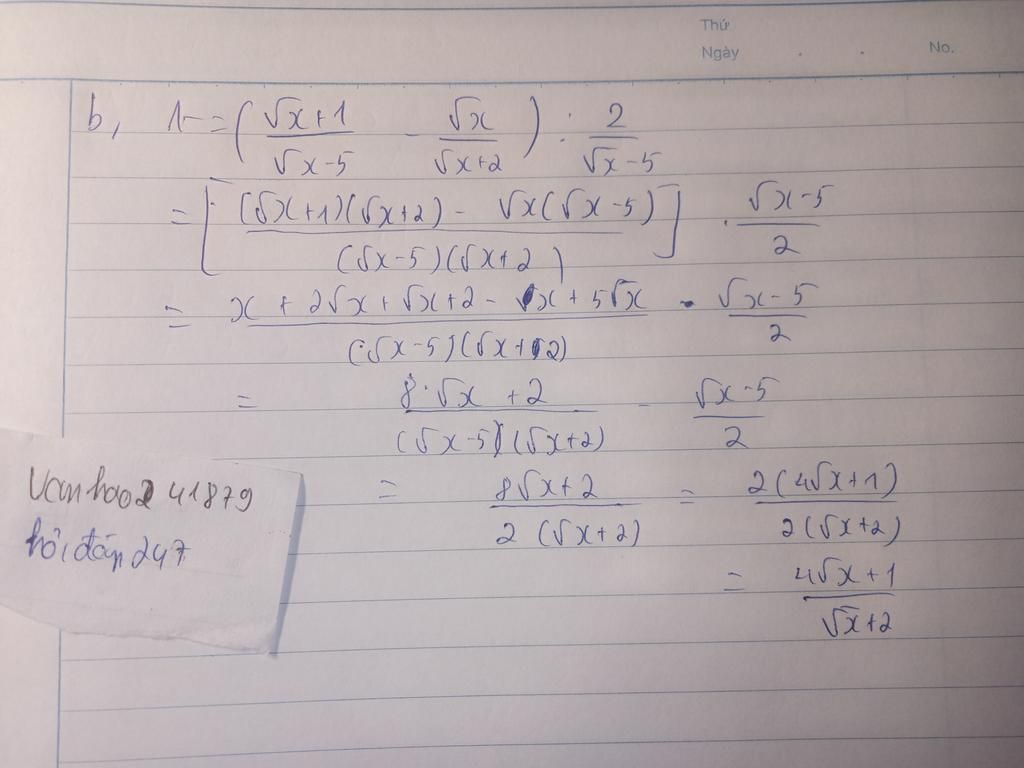 Thứ
Ngày . . No.
b, A = ( (√x+1)/(√x-5) - √x/(√x+2) ) : 2/(√x-5)
= [ ((√x+1)(√x+2) - √x(√x-5))/((√x-5)(√x+2)) ] . (√x-5)/2
= (x + 2√x + √x + 2 - x + 5√x)/((√x-5)(√x+2)) . (√x-5)/2
= (8.√x + 2)/((√x-5)(√x+2)) . (√x-5)/2
= (8√x+2)/(2(√x+2)) = (2(4√x+1))/(2(√x+2))
= (4√x+1)/(√x+2)
Vanhao2 41879
hỏi đáp 247